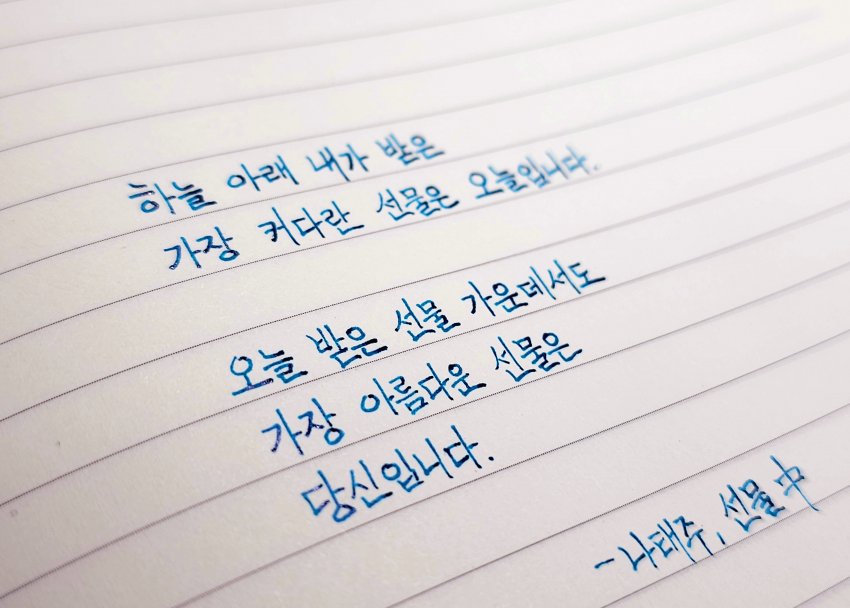 하늘 아래 내가 받은
가장 커다란 선물은 오늘입니다.
오늘 받은 선물 가운데서도
가장 아름다운 선물은
당신입니다.
- 나태주, 선물 中